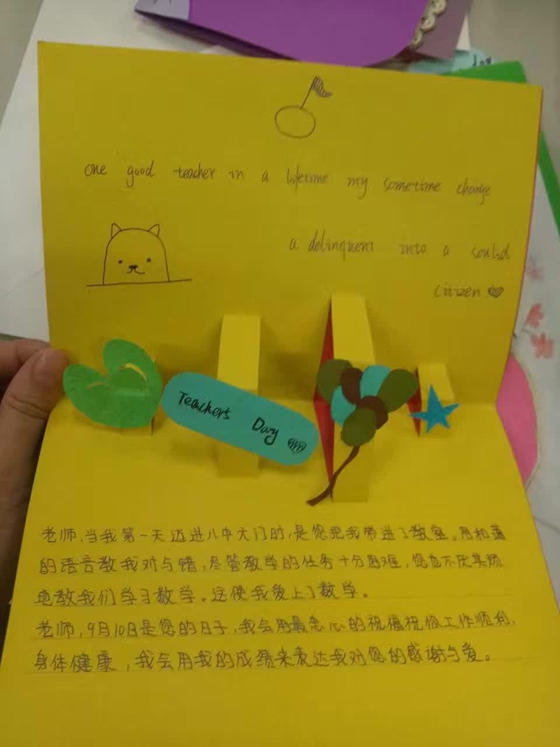 one good teacher in a lifetime my sometime change
a delinquent into a soulid
citizen
Teachers Day
老师,当我第一天迈进八中大门时,是您把我带进了教室。用和蔼
的语言教我对与错,尽管教学的任务十分困难,您也不厌其烦
地教我们学习数学。这使我爱上了数学。
老师,9月10日是您的日子,我会用最忠心的祝福祝您工作顺利,
身体健康,我会用我的成绩来表达我对您的感谢与爱。